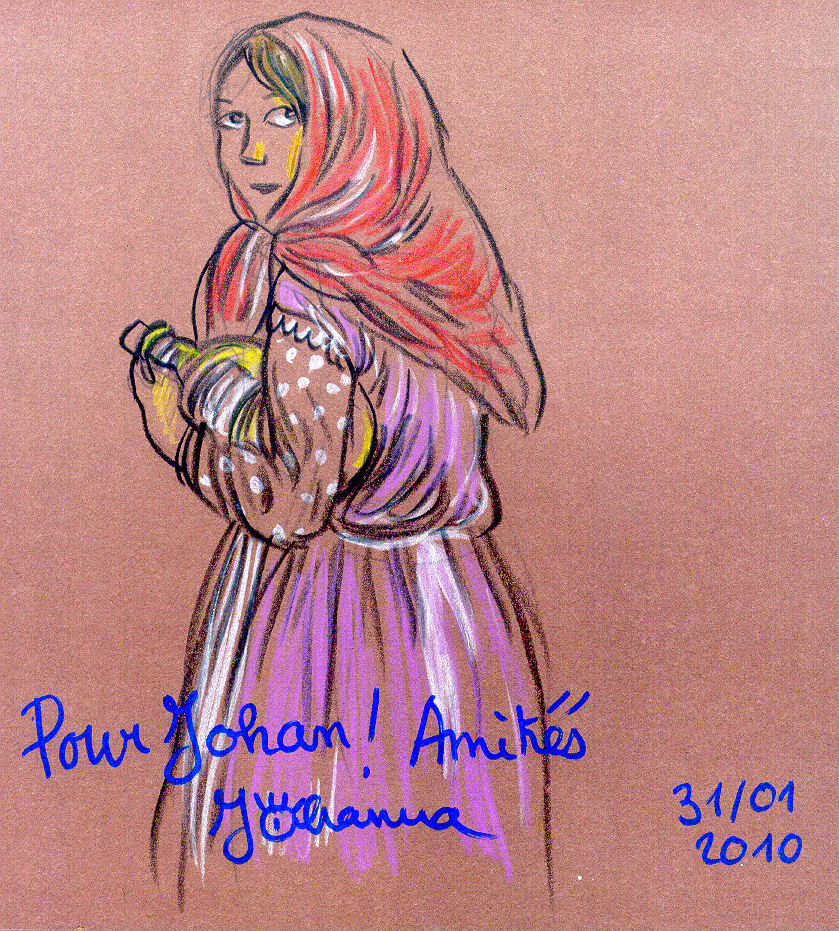 Pour Johan! Amitiés
Johanna
31/01
2010